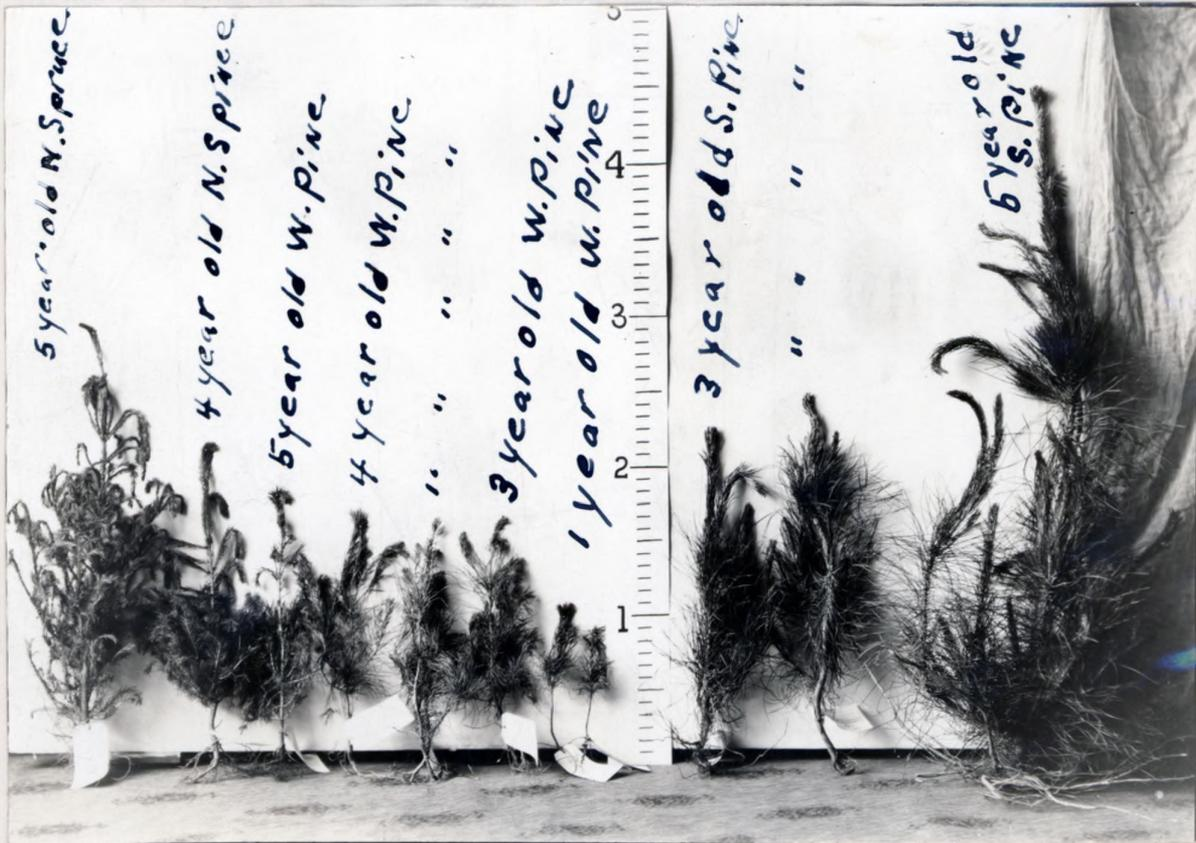 5 year old N. Spruce
4 year old N. Spruce
5 year old W. Pine
4 year old W. Pine
" " " " "
3 year old W. Pine
1 year old W. Pine
4
3
2
1
3 year old S. Pine
" " " "
5 year old
S. Pine